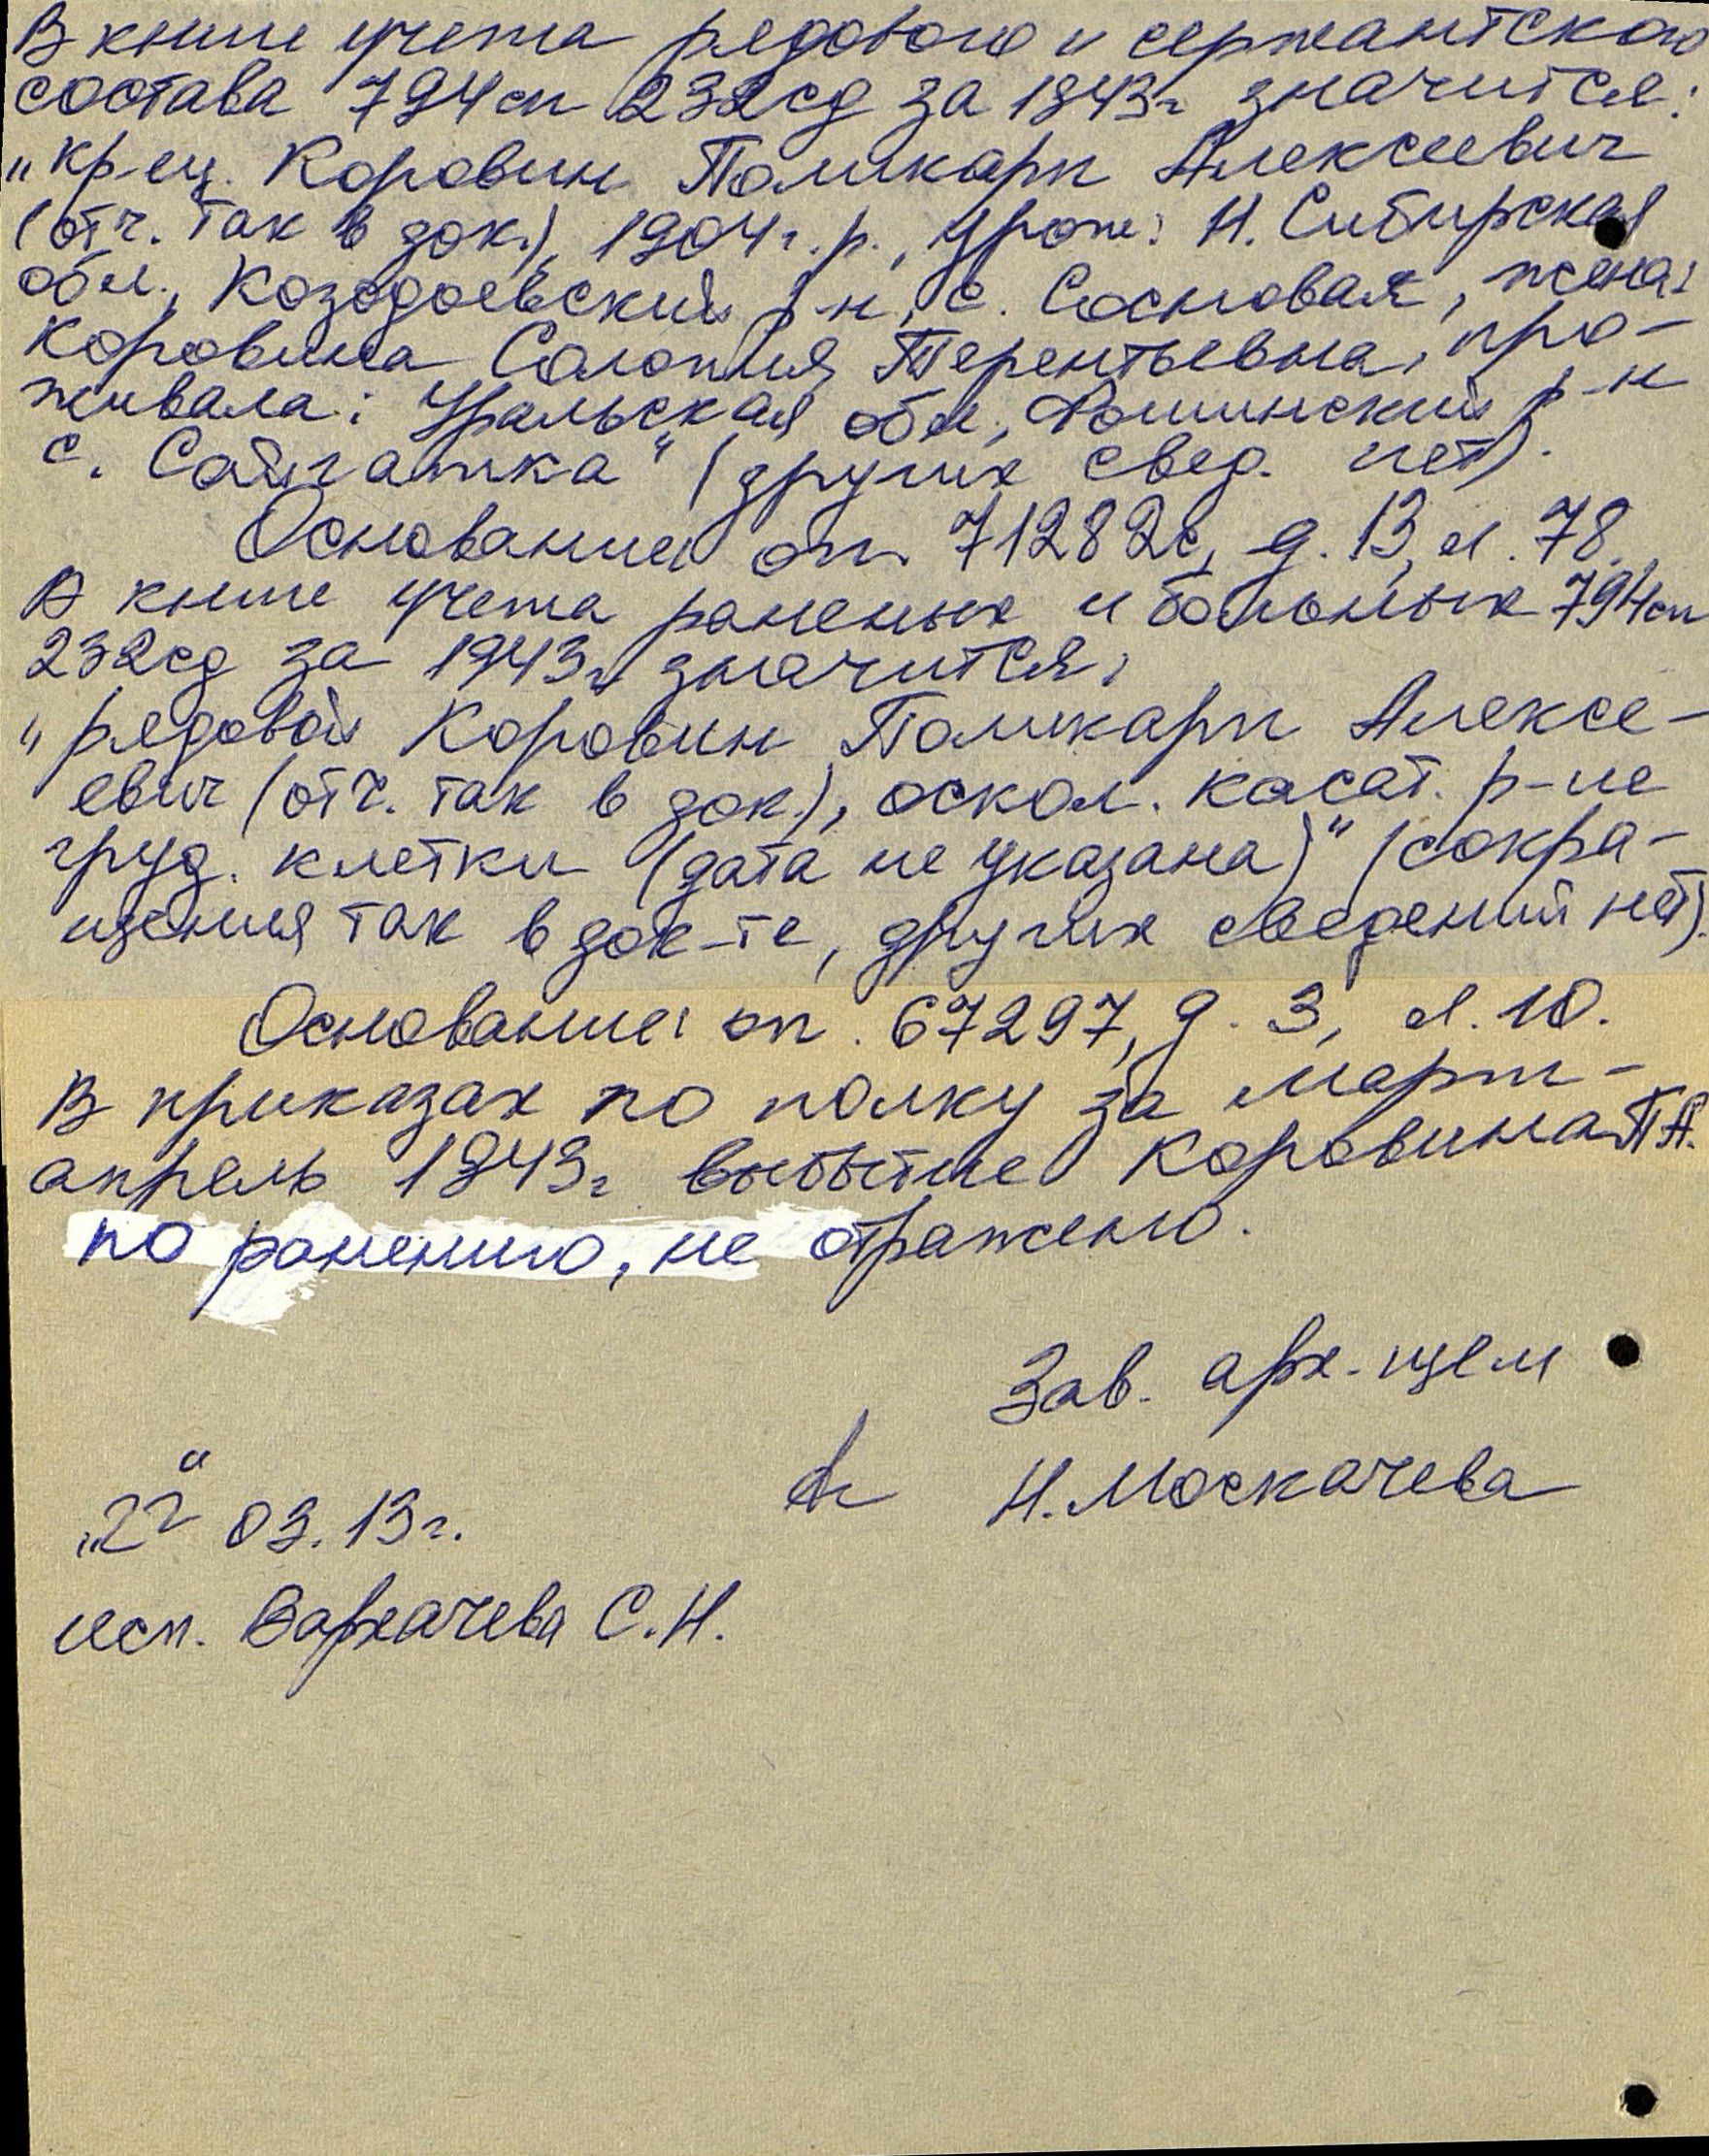 В книге учета рядового и сержантского
состава 794 сп 232 сд за 1943г значится:
„кр-ец. Коровин Поликарп Алексеевич
(отч. так в док.), 1904 г.р., урож: Н. Сибирская
обл., Козодоевский р-н, с. Сосновая, жена:
Коровина Саломия Терентьевна, про-
живала: Уральская обл., Фошинский р-н
с. Сайгатка" (других свед. нет).
Основание оп. 712828с, д. 13, л. 78.
В книге учета раненых и больных 794 сп
232 сд за 1943г. значится:
„рядовой Коровин Поликарп Алексе-
евич (отч. так в док.), оскол. касат. р-ие
груд. клетки (дата не указана)" (сокра-
щения так в док-те, других сведений нет).
Основание: оп. 67297, д. 3, л. 10.
В приказах по полку за март-
апрель 1943г выбытие Коровина П.А.
по ранению, не отражено.
Зав. арх-щем
„22" 03.13г.
Н. Москачева
исп. Вархачева С.Н.